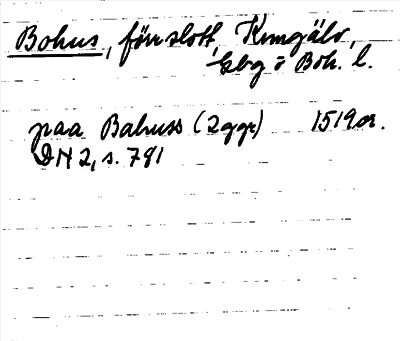 Bohus, förr slott, Kungälv,
Gbg o Boh. l.
paa Bahuss (2 ggr) 1519 or.
DN 2, s. 791